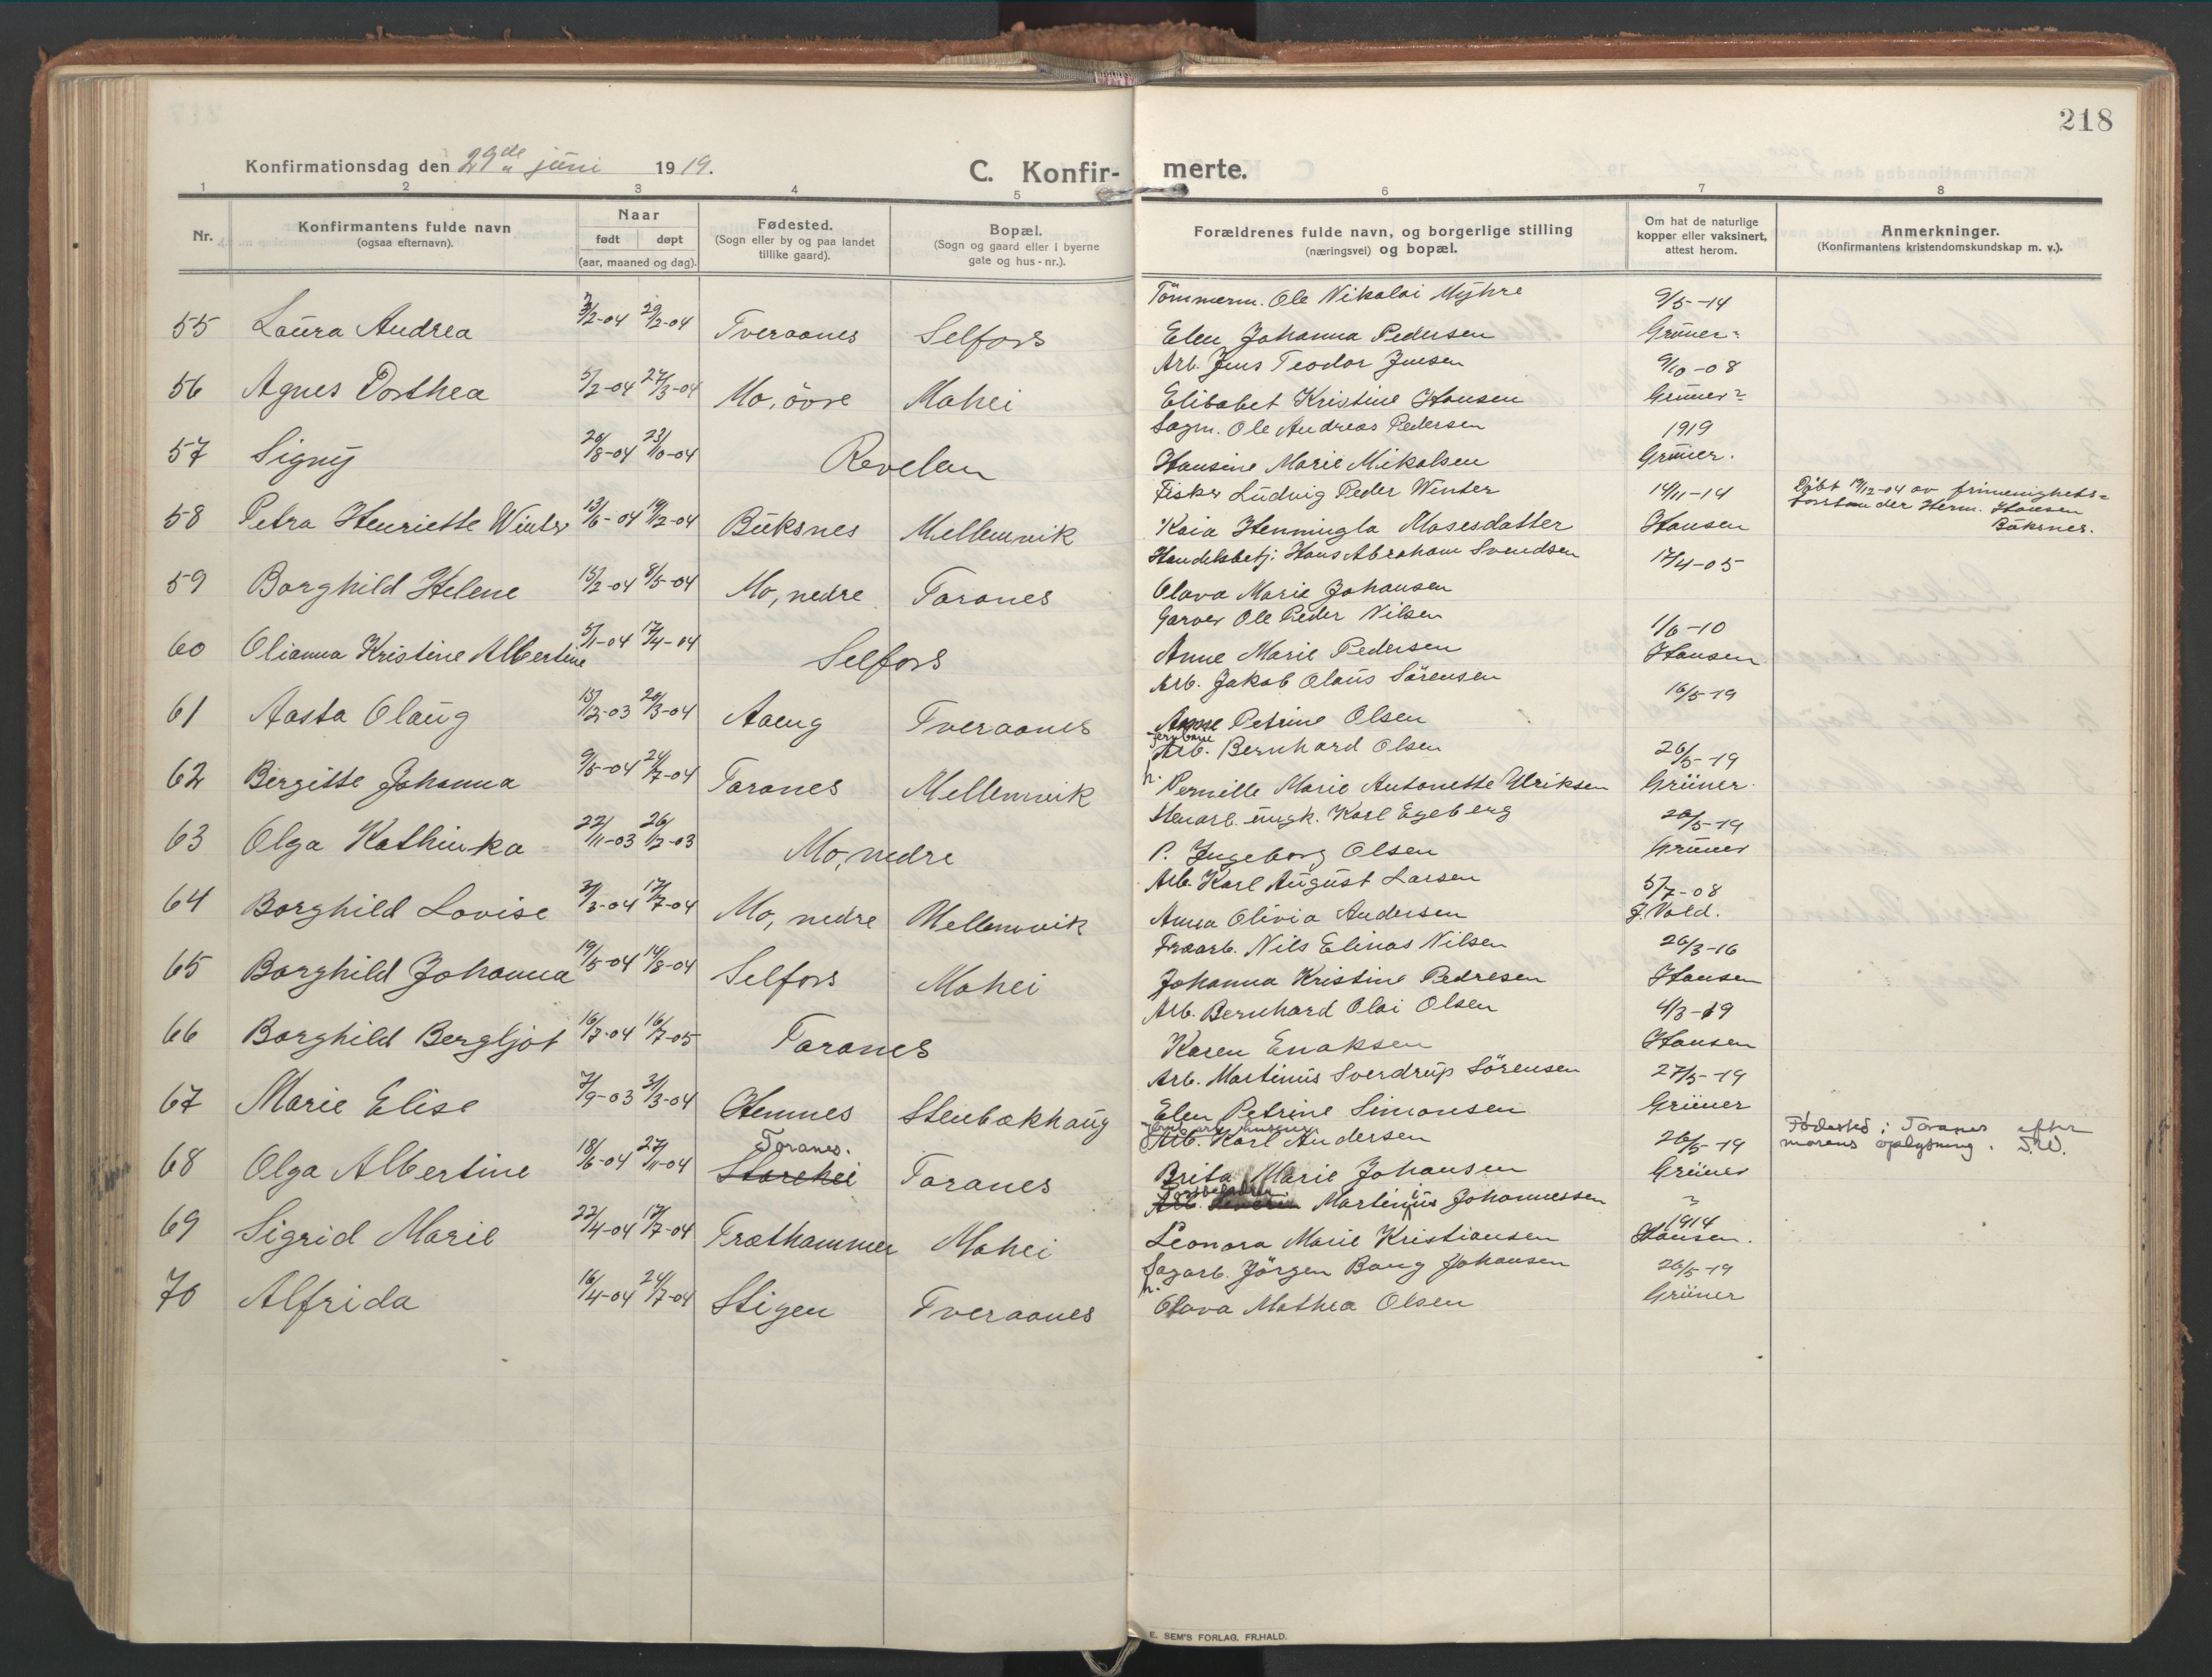 218
Konfirmationsdag den 29de juni 1919.
C. Konfir- merte.
1 2 3 4 5 6 7 8
Nr.
Konfirmantens fulde navn
(ogsaa efternavn).
Naar
født døpt
(aar, maaned og dag).
Fødested.
(Sogn eller by og paa landet
tillike gaard).
Bopæl.
(Sogn og gaard eller i byerne
gate og hus-nr.).
Forældrenes fulde navn, og borgerlige stilling
(næringsvei) og bopæl.
Om hat de naturlige
kopper eller vaksinert,
attest herom.
Anmerkninger.
(Konfirmantens kristendomskundskap m. v.).
Tömmerm. Ole Nikolai Myhre 9/5-14
55 Laura Andrea 3/2-04 29/2-04 Tveraanes Selfors Elen Johanna Pedersen Grüner
Arb. Jens Teodor Jensen 9/10-08
56 Agnes Dorthea 5/2-04 27/3-04 Mo, övre Mohei Elisabet Kristine Hansen Grüner
Sagm. Ole Andreas Pedersen 1919
57 Signy 20/8-04 23/10-04 Revelen Hansine Marie Mikalsen Grüner.
Fisker Ludvig Peder Winter 14/11-14 Döbt 19/12-04 av frimenighets-
forstander Herm. Hansen
58 Petra Henriette Winter 13/6-04 19/12-04 Buksnes Mellemvik Kaia Henningla Mosesdatter Hansen Buksnes.
Handelsbetj. Hans Abraham Svendsen 17/4-05
59 Borghild Helene 15/2-04 8/5-04 Mo, nedre Toranes Olava Marie Johansen
Garver Ole Peder Nilsen 1/6-10
60 Olianna Kristine Albertine 5/1-04 17/4-04 Selfors Anne Marie Pedersen Hansen
Arb. Jakob Olaus Sörensen 16/5-19
61 Aasta Olaug 15/12-03 20/3-04 Aaeng Tveraanes Petrine Olsen
jernbane
Arb. Bernhard Olsen 26/5-19
62 Bergitte Johanna 9/5-04 24/7-04 Toranes Mellemvik h. Pernille Marie Antonette Ulriksen Grüner.
Stenarb. ungk. Karl Egeberg 26/5-19
63 Olga Kathinka 22/11-03 26/12-03 Mo, nedre P. Ingeborg Olsen Grüner
Arb. Karl August Larsen 5/7-08
64 Borghild Lovise 3/3-04 17/7-04 Mo, nedre Mellemvik Anna Olivia Andersen J. Vold.
Fraarb. Nils Elinas Nilsen 26/3-16
65 Borghild Johanna 19/5-04 14/8-04 Selfors Mohei Johanna Kristine Pedresen Hansen
Arb. Bernhard Olai Olsen 4/3-19
66 Borghild Bergljot 16/7-04 16/7-05 Toranes Karen Enoksen Hansen
Arb. Martinus Sverdrup Sörensen 27/5-19
67 Marie Elise 7/9-03 31/3-04 Hemnes Stenbækhaug Elen Petrine Simonsen Grüner
Arb. Karl Andersen 26/5-19 Fødested: Toranes efter
morens oplysning.
Toranes.
68 Olga Albertine 18/6-04 27/11-04 Storehei Toranes Brita Marie Johansen Grüner
Arb. Martinius Johannessen 1914
69 Sigrid Marie 22/4-04 17/7-04 Træthammer Mohei Leonora Marie Kristiansen Hansen.
Sagarb. Jörgen Bang Johansen 26/5-19
70 Alfrida 16/4-04 24/7-04 Stigen Tveraanes h. Olava Mathea Olsen Grüner
E. SEM'S FORLAG, FR.HALD.